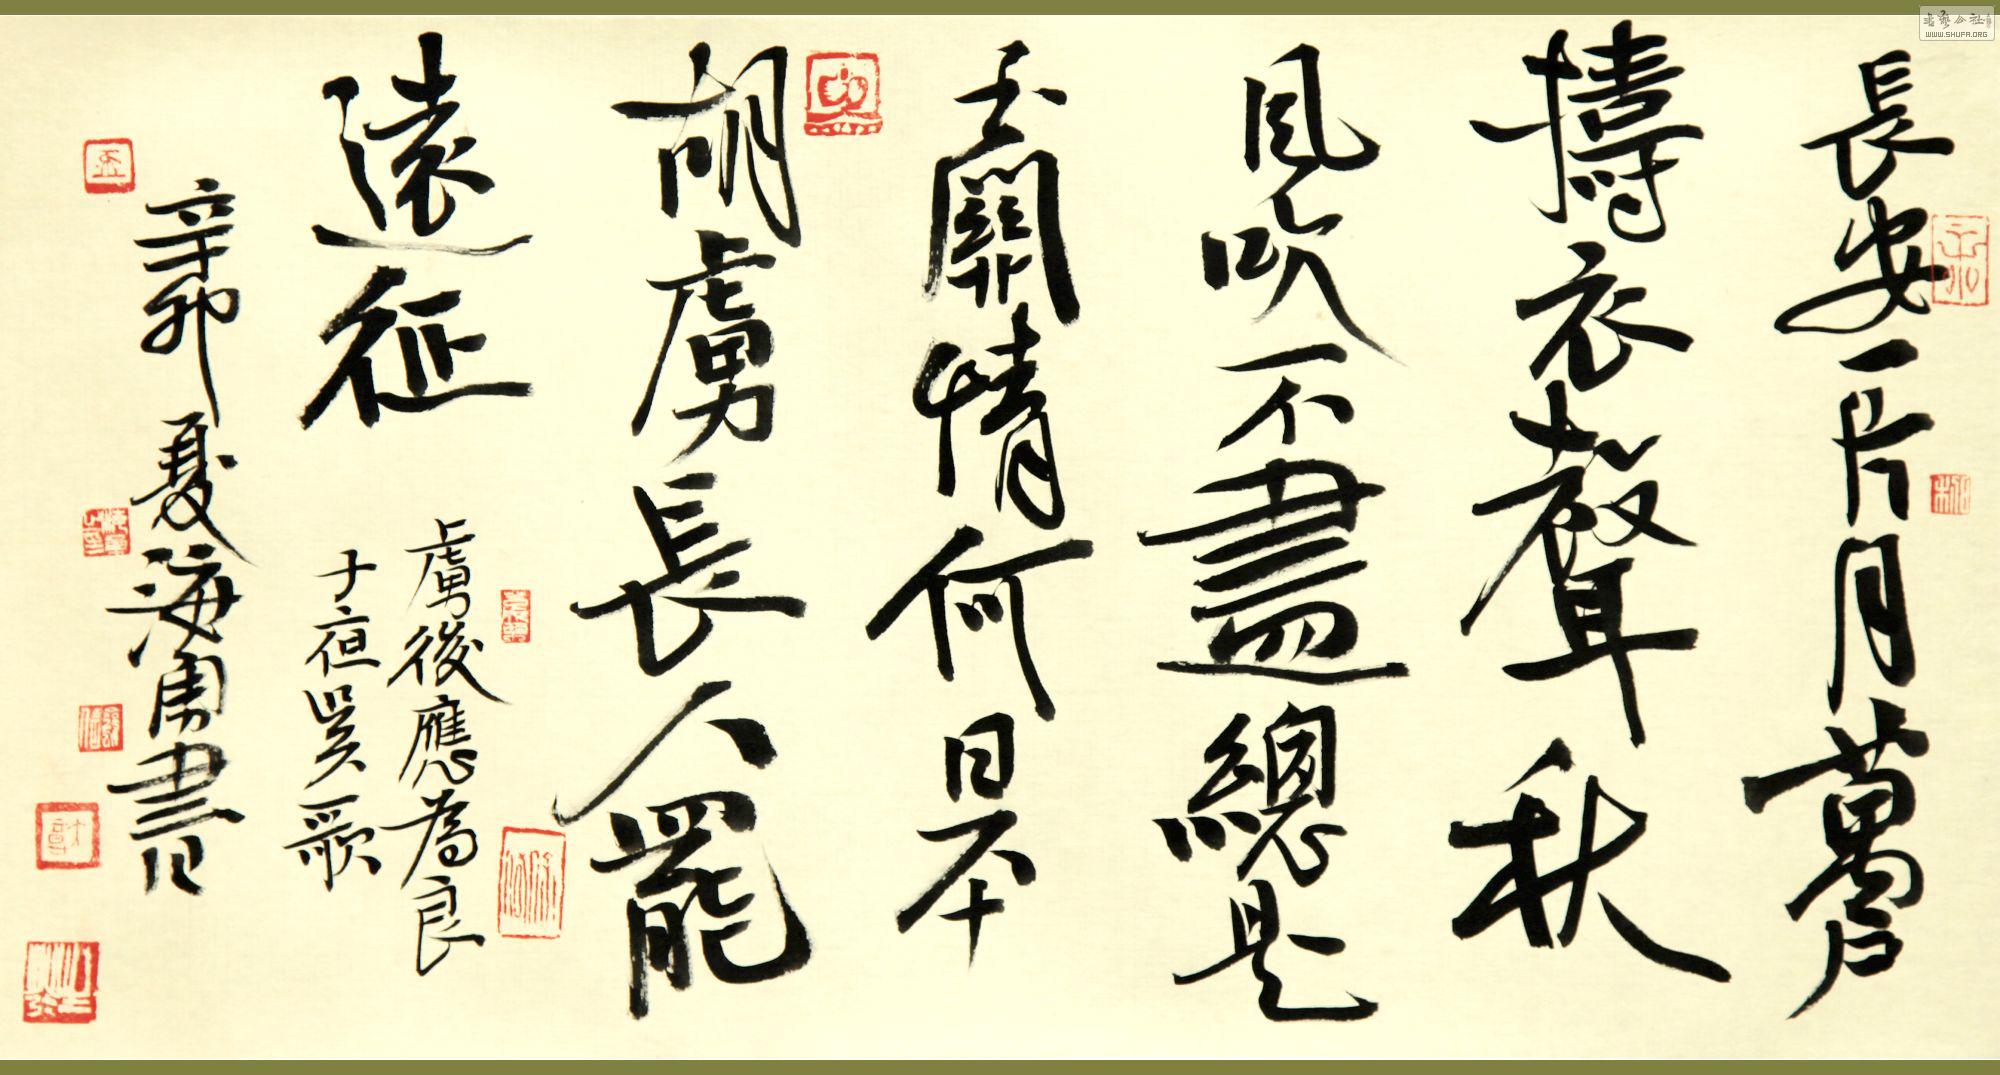 長安一片月萬戶
擣衣聲秋
風吹不盡總是
玉關情何日平
胡虜長人罷
遠征
虜後應為良
子夜吳歌
辛卯夏海勇書
WWW.SHUFA.ORG